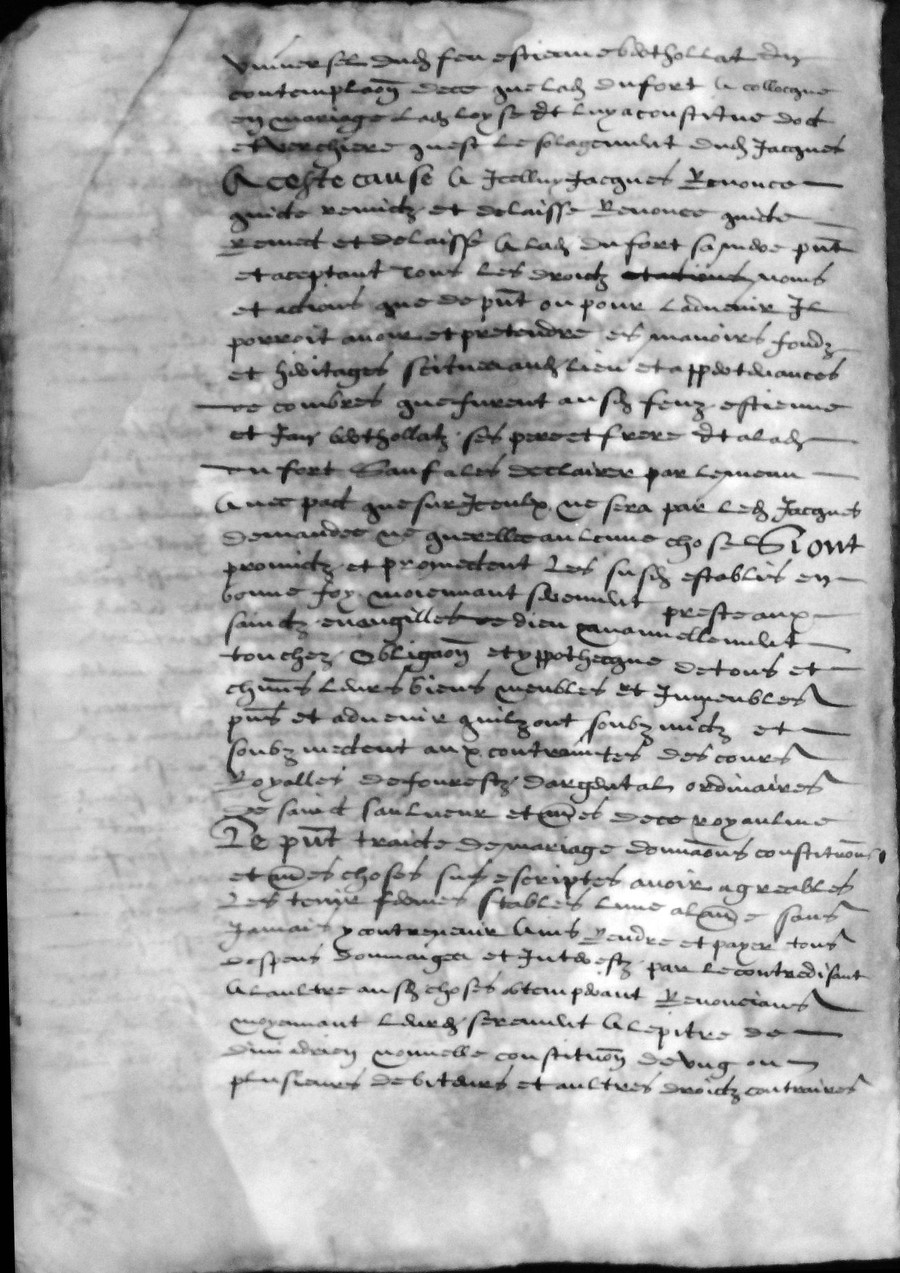 universel dud feu estienne berthollat En
contemplaon de ce que lad dufort A collocque
en mariage lad loyse et luy a constitue dot
et verchiere quest le solagement dud Jacques
A ceste cause A Icelluy Jacques Renonce
quicte remictz et delaisse Renonce quicte
Remect et delaisse A lad dufort sa mere pnt
et aceptant tous les droictz et actions noms
et actions que de pnt ou pour ladvenir Il
porroit avoir et pretendre es manoirs fondz
et heritages scitues aud lieu et appertenances
de combres que furent ausd feuz estienne
et Jan berthollatz ses pere et frere et a lad
du fort Sauf a les declairer par le menu
Avec pact que sur Iceulx ne sera par led Jacques
demandee ne querellee aulcune chose Si ont
promictz et promectent Les susd establis en
bonne foy moiennant serement preste aux
sainctz evangilles de dieu manuellement
touchez Obligaon et yppothecque de tous et
chuns leurs biens meubles et Immeubles
pns et advenir quilz ont soubzmictz et
soubzmectent aux contrainctes des cours
Royalles de fourestz dargental ordinaires
de sainct saulveur et aues de ce royaulme
Le pnt traicte de mariage donnaons constitutions
et aues choses susescriptes avoir agreables
Les tenir fermes stables lune a laue sans
Jamais y contrevenir Ains Rendre et payer tous
despens dommaiges et Interestz par le contredisant
A laultre ausd choses obtemperant Renoncians
moyennant leurd serement A lepitre de
divi adrien nouvelle constituon de ung ou
plusieurs debiteurs et aultres droictz contraires